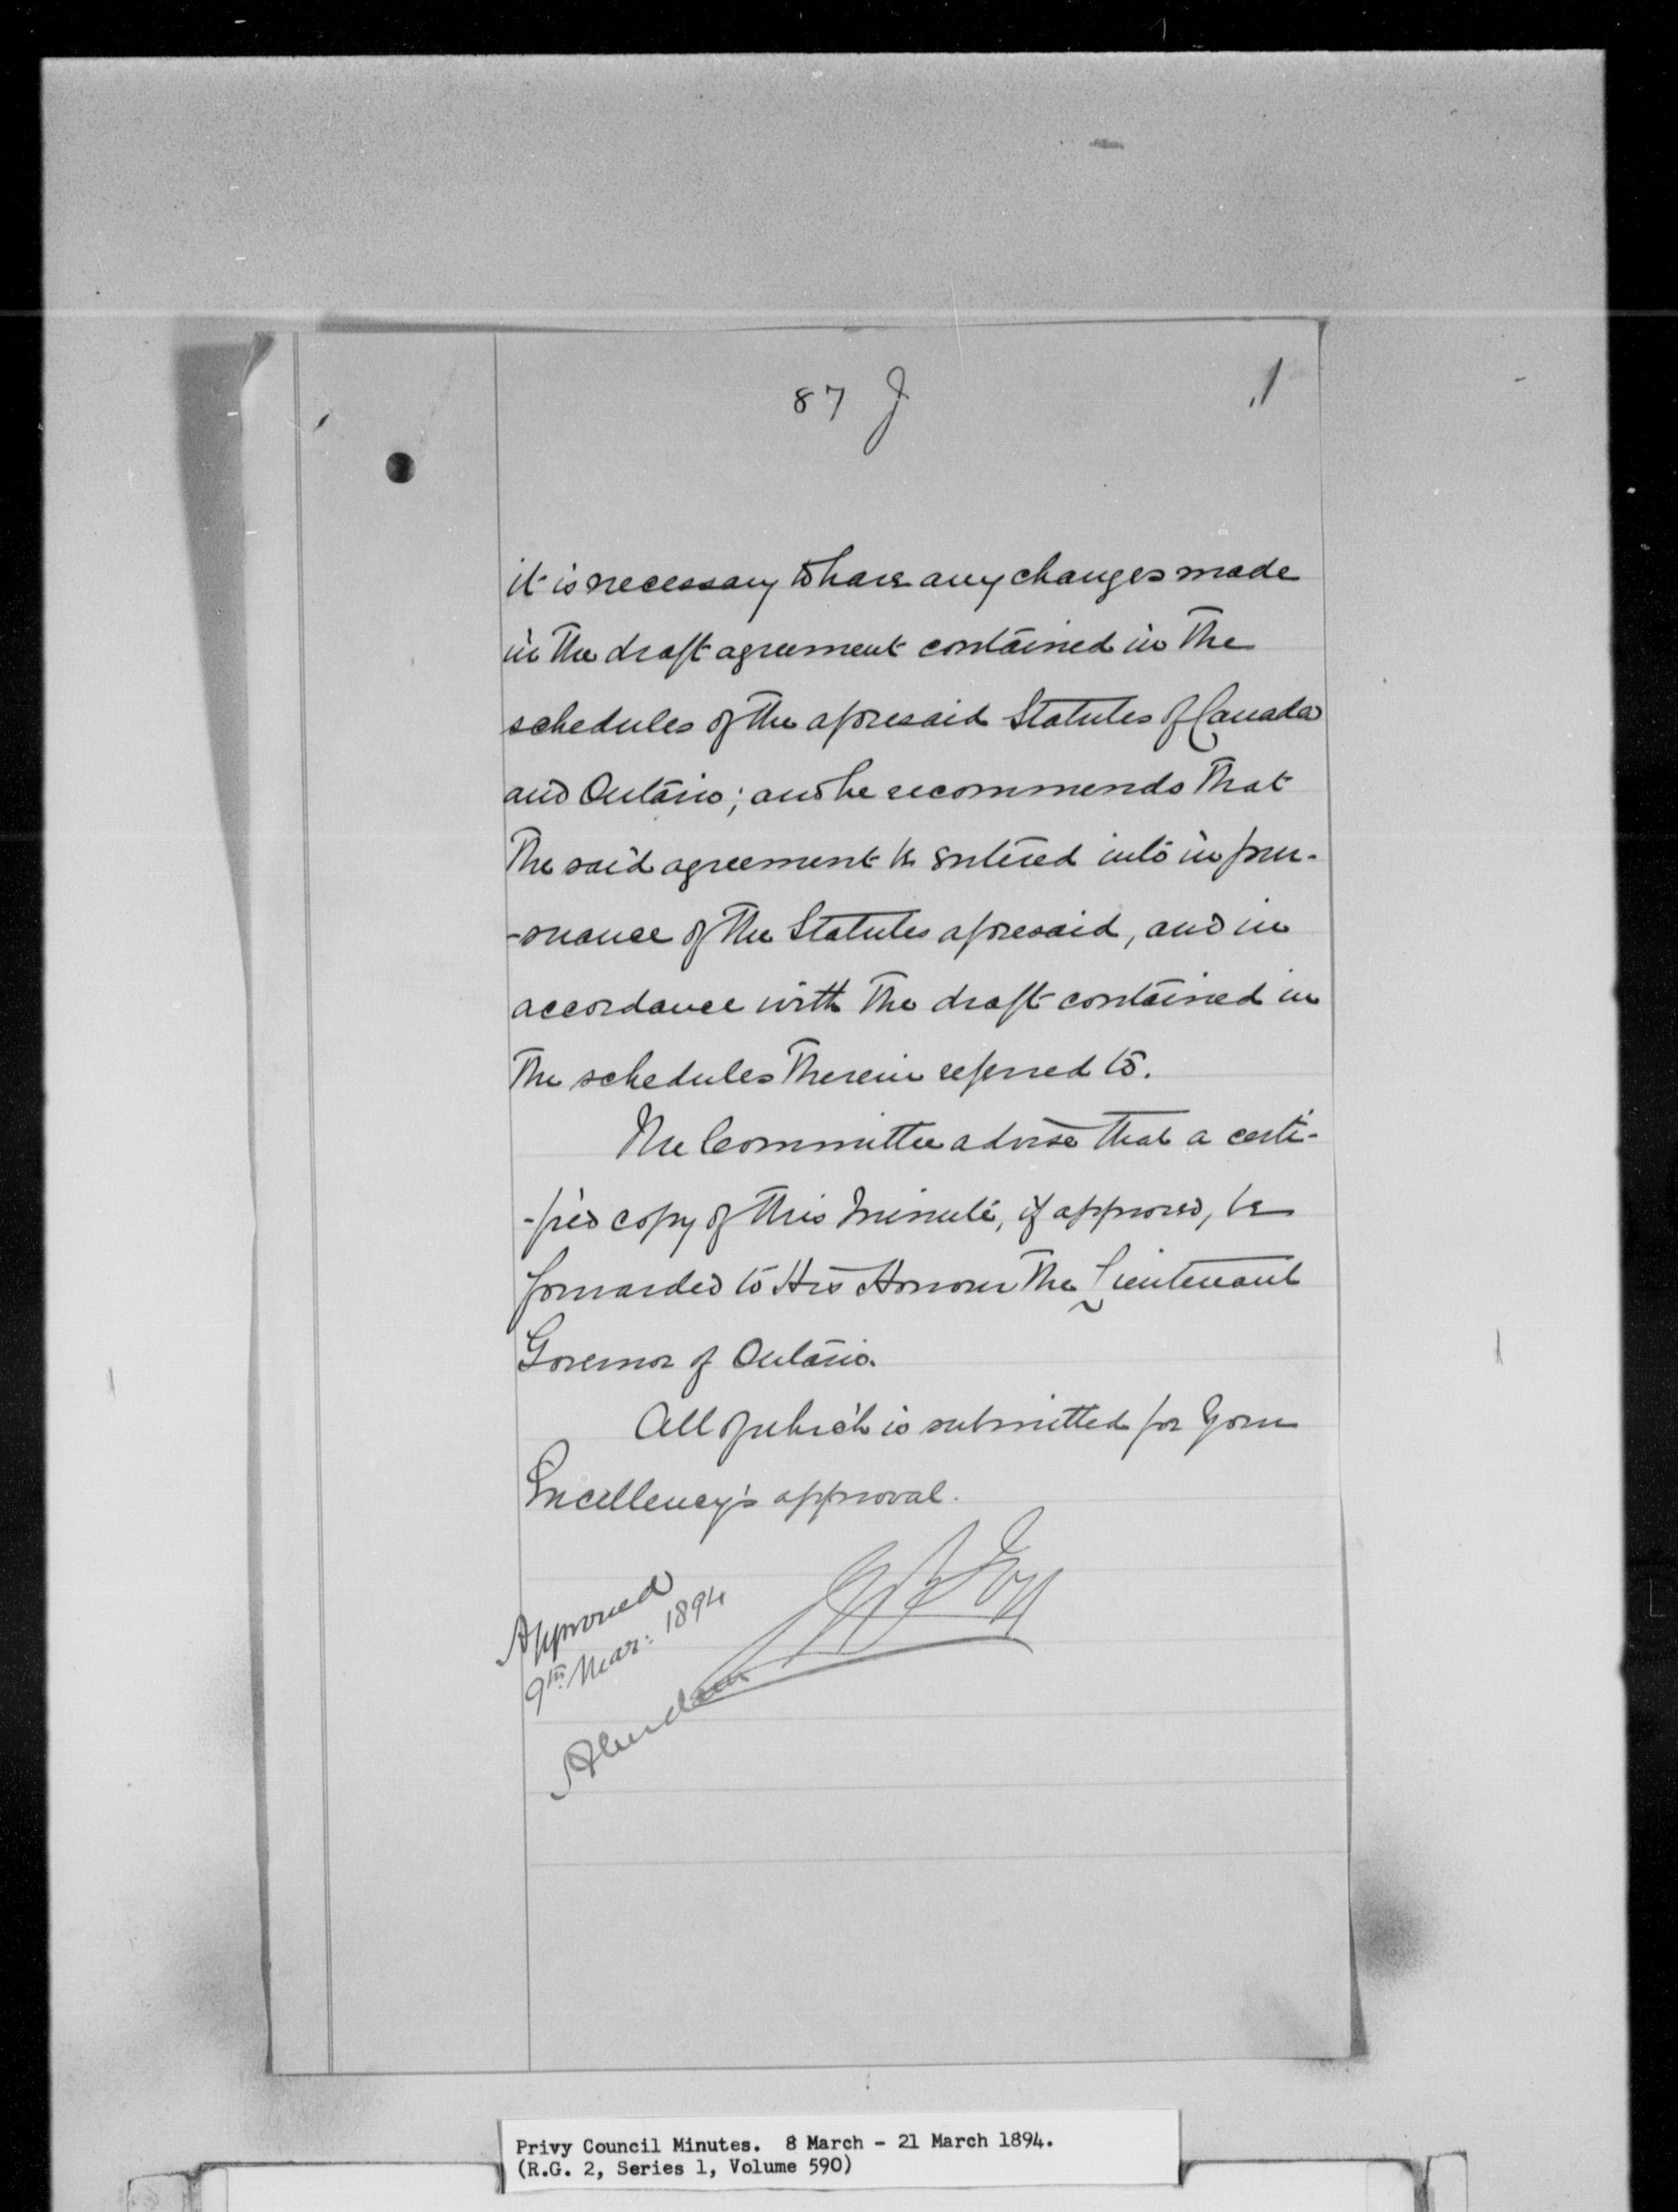 87 J
it is necessary to have any changes made
in the draft agreement contained in the
schedules of the aforesaid Statutes of Canada
and Ontario; and he recommends that
the said agreement be entered into in pur-
-suance of the Statutes aforesaid, and in
accordance with the draft contained in
the schedules therein referred to.
The Committee advise that a certi-
-fied copy of this Minute, if approved, be
forwarded to His Honour the Lieutenant
Governor of Ontario.
All of which is submitted for Your
Excellency's approval.
Approved
9th Mar: 1894
Aberdeen
Privy Council Minutes. 8 March - 21 March 1894.
(R.G. 2, Series 1, Volume 590)